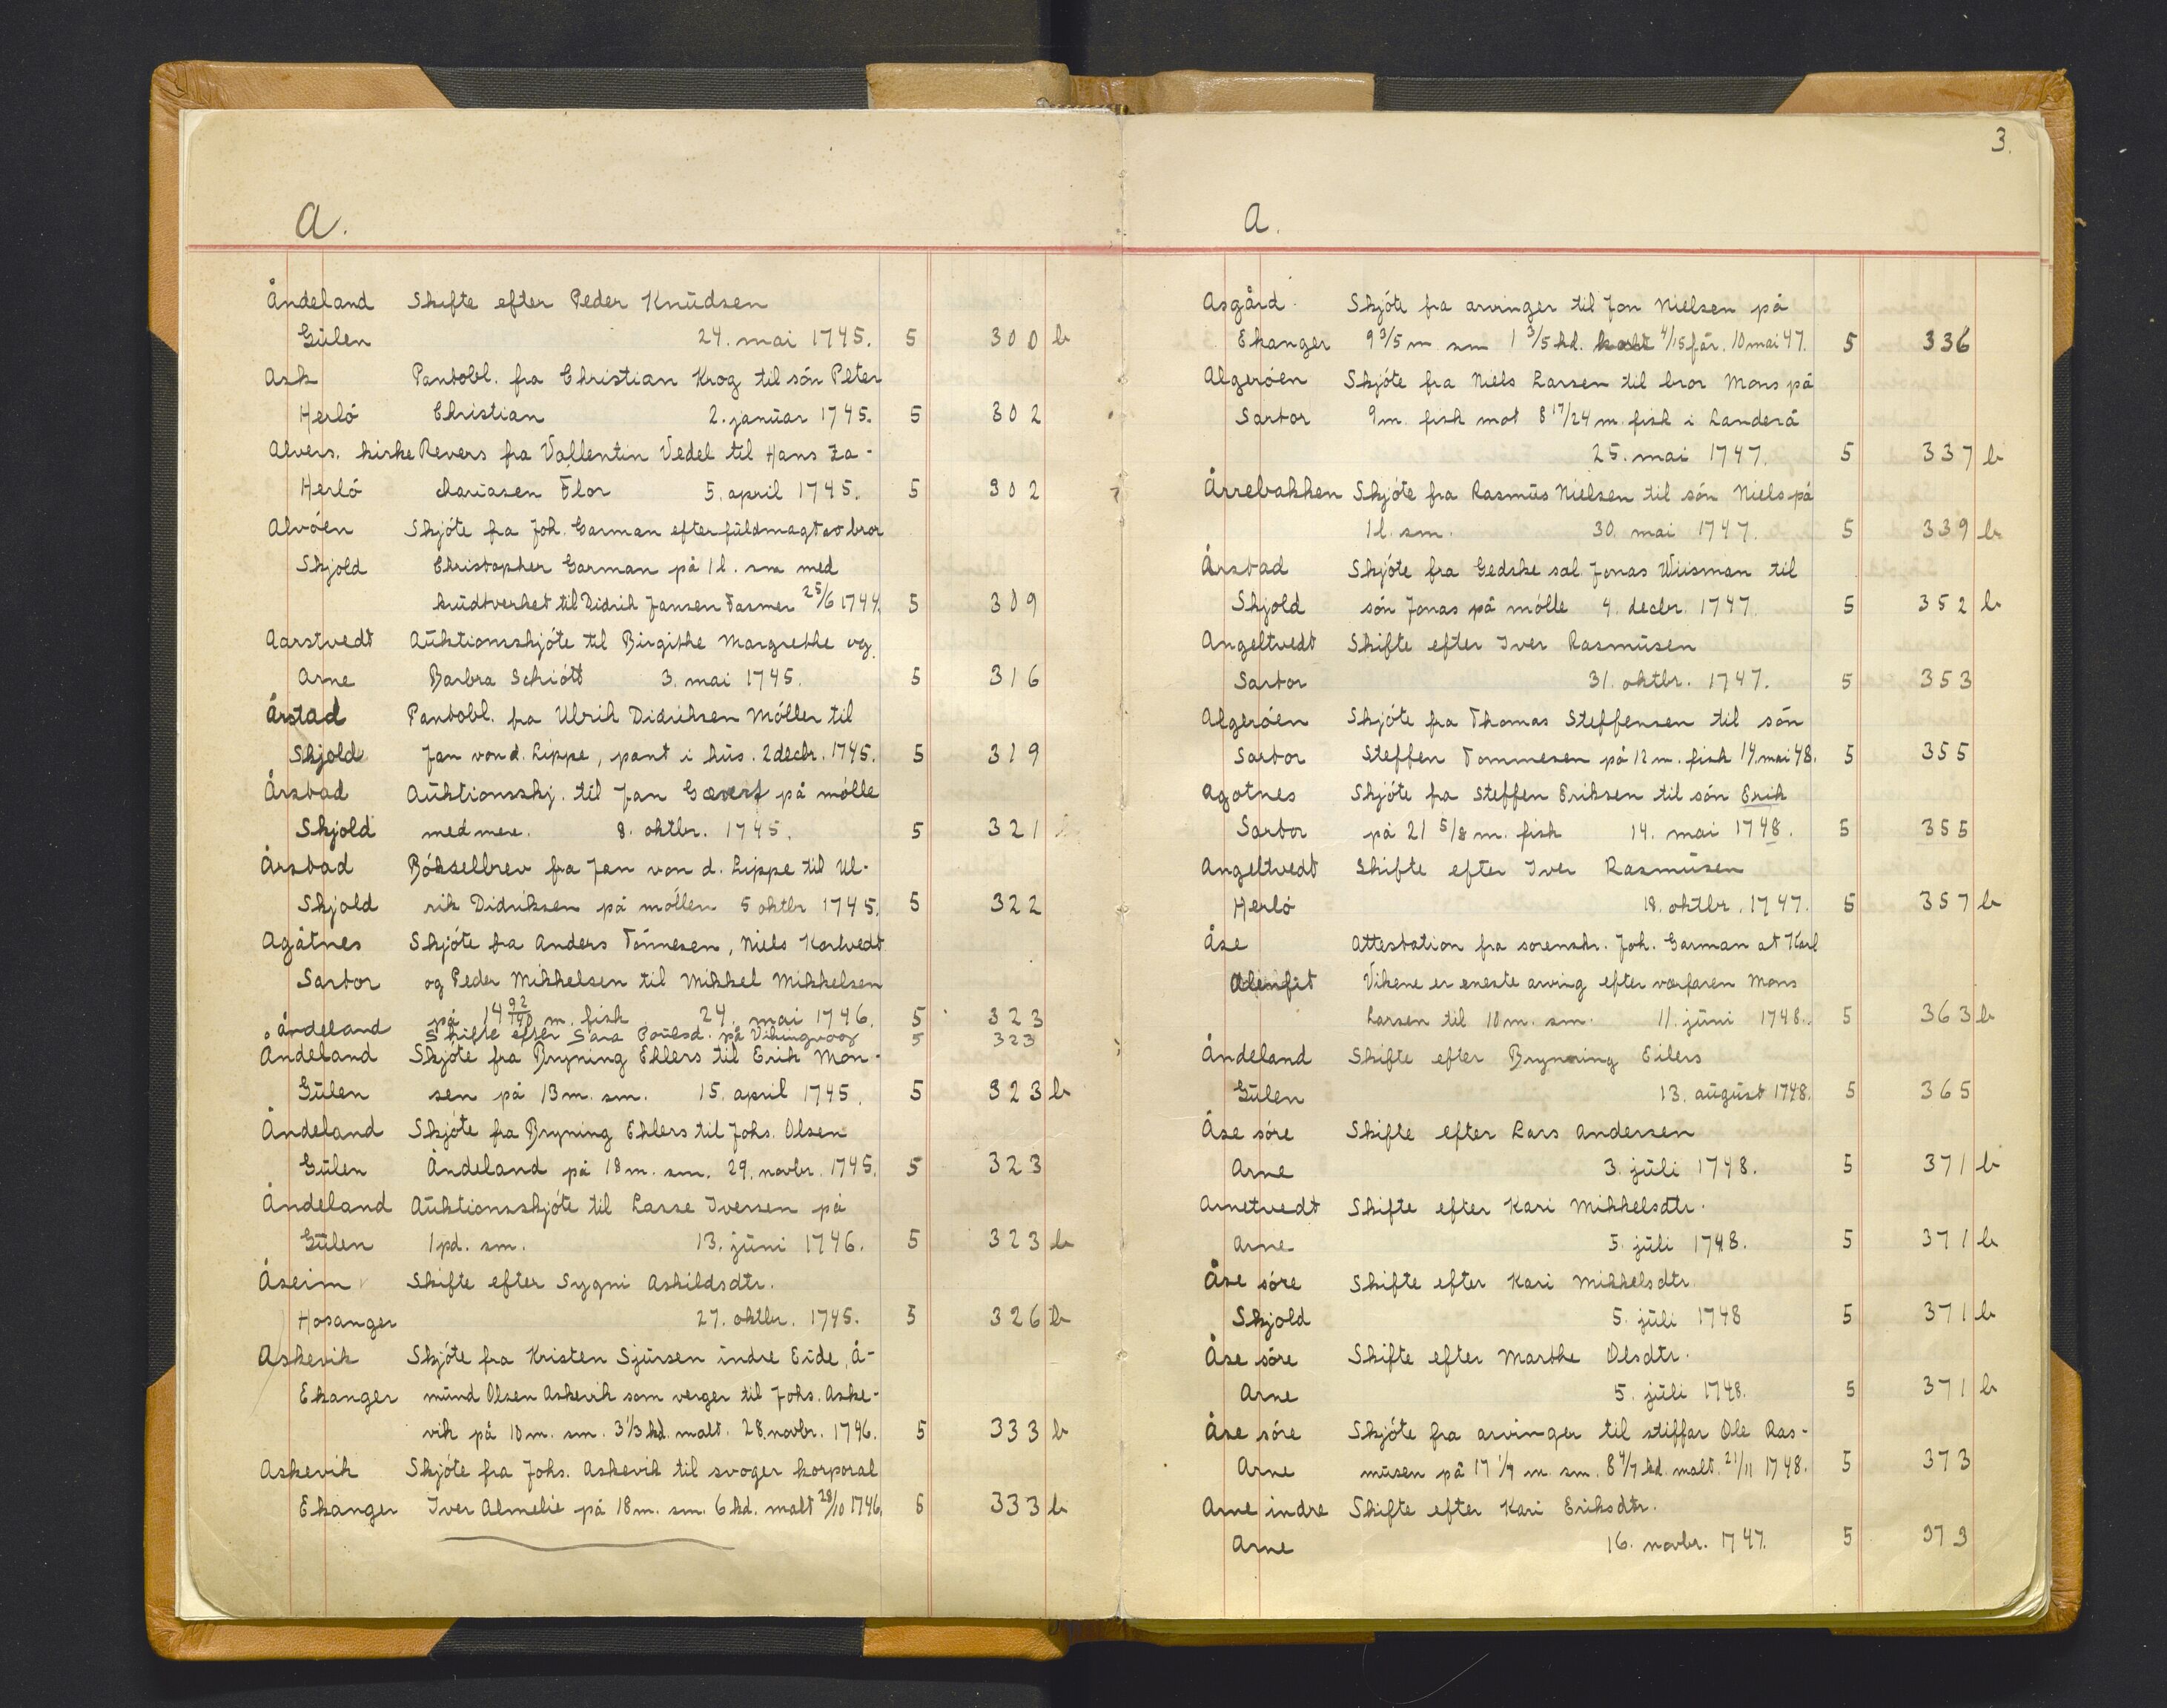 A.
Åndeland Skifte efter Peder Knudsen
Gulen 24. mai 1745. 5 300 b
Ask Pantobl. fra Christian Krog til søn Peter
Herlø Christian 2. januar 1745. 5 302
Alvers. kirke Revers fra Vallentin Vedel til Hans Za-
Herlø chariasen Flor 5. april 1745. 5 302
Alvøen Skjøte fra Joh. Garman efter fuldmagt av bror
Skjold Christopher Garman på 1 l. sm med
krudtverket til Didrik Jansen Fasmer 25/6 1744. 5 309
Aarstvedt Auktionsskjøte til Birgithe Margrethe og
Arne Barbra Schiøtt 3. mai 1745. 5 316
Årstad Pantobl. fra Ulrik Didriksen Møller til
Skjold Jan von d. Lippe, pant i hus. 2 decbr. 1745. 5 319
Årstad Auktionsskj. til Jan på mølle
Skjold med mere. 8. oktbr. 1745. 5 321
Årstad Bøkselbrev fra Jan von d. Lippe til Ul-
Skjold rik Didriksen på møllen 5 oktbr 1745. 5 322
Agåtnes Skjøte fra Anders Tønnesen, Niels Kortvedt
Sartor og Peder Mikkelsen til Mikkel Mikkelsen
på 14 92/140 m. fisk 24. mai 1746. 5 323
Åndeland Skifte efter Sara Poulsd. på Vikingvaag 5 323
Åndeland Skjøte fra Bryning Ehlers til Erik Mon-
Gulen sen på 13 m. sm. 15. april 1745. 5 323 b
Åndeland Skjøte fra Bryning Ehlers til Johs. Olsen
Gulen Åndeland på 18 m. sm. 29. novbr. 1745. 5 323
Åndeland Auktionsskjøte til Lasse Iversen på
Gulen 1 pd. sm. 13. juni 1746. 5 323 b
Åseim Skifte efter Sygni Askildsdtr.
Hosanger 27. oktbr. 1745. 5 326 b
Askevik Skjøte fra Kristen Sjursen indre Eide, Å-
Ekanger mund Olsen Askevik som verger til Johs. Aske-
vik på 10 m. sm. 3 1/3 hd. malt. 28. novbr. 1746. 5 333 b
Askevik Skjøte fra Johs. Askevik til svoger korporal
Ekanger Iver Almelie på 18 m. sm. 6 hd. malt 28/10 1746. 5 333 b
3.
A.
Asgård. Skjøte fra arvinger til Jon Nielsen på
Ekanger 9 3/5 m sm 1 3/5 hd. 4/15 får. 10 mai 47. 5 336
Algerøen Skjøte fra Niels Larsen til bror Mons på
Sartor 9 m. fisk mot 8 17/24 m. fisk i Landerå
25. mai 1747. 5 337 b
Årrebakken Skjøte fra Rasmus Nielsen til søn Niels på
1 l. sm. 30. mai 1747. 5 339 b
Årstad Skjøte fra Gedske sal. Jonas Wiisman til
Skjold søn Jonas på mølle 4. decbr. 1747. 5 352 b
Angeltvedt Skifte efter Iver Rasmusen
Sartor 31. oktbr. 1747. 5 353
Algerøen Skjøte fra Thomas Steffensen til søn
Sartor Steffen Tommesen på 12 m. fisk 14. mai 48. 5 355
Agotnes Skjøte fra Steffen Eriksen til søn Erik
Sartor på 21 5/8 m. fisk 14. mai 1748. 5 355
Angeltvedt Skifte efter Iver Rasmusen
Herlø 18. oktbr. 1747. 5 357 b
Åse Attestation fra sorenskr. Joh. Garman at Karl
Alenfit Vikene er eneste arving efter værfaren Mons
Larsen til 10 m. sm. 11. juni 1748. 5 363 b
Åndeland Skifte efter Brynning Eilers
Gulen 13. august 1748. 5 365
Åse søre Skifte efter Lars Andersen
Arne 3. juli 1748. 5 371 b
Arnetvedt Skifte efter Kari Mikkelsdtr.
Arne 5. juli 1748. 5 371 b
Åse søre Skifte efter Kari Mikkelsdtr.
Skjold 5. juli 1748 5 371 b
Åse søre Skifte efter Marthe Olsdtr.
Arne 5. juli 1748. 5 371 b
Åse søre Skjøte fra arvinger til stiffar Ole Ras-
Arne musen på 17 1/7 m. sm. 8 4/7 hd. malt. 21/11 1748. 5 373
Arne indre Skifte efter Kari Eriksdtr.
Arne 16. novbr. 1747. 5 373